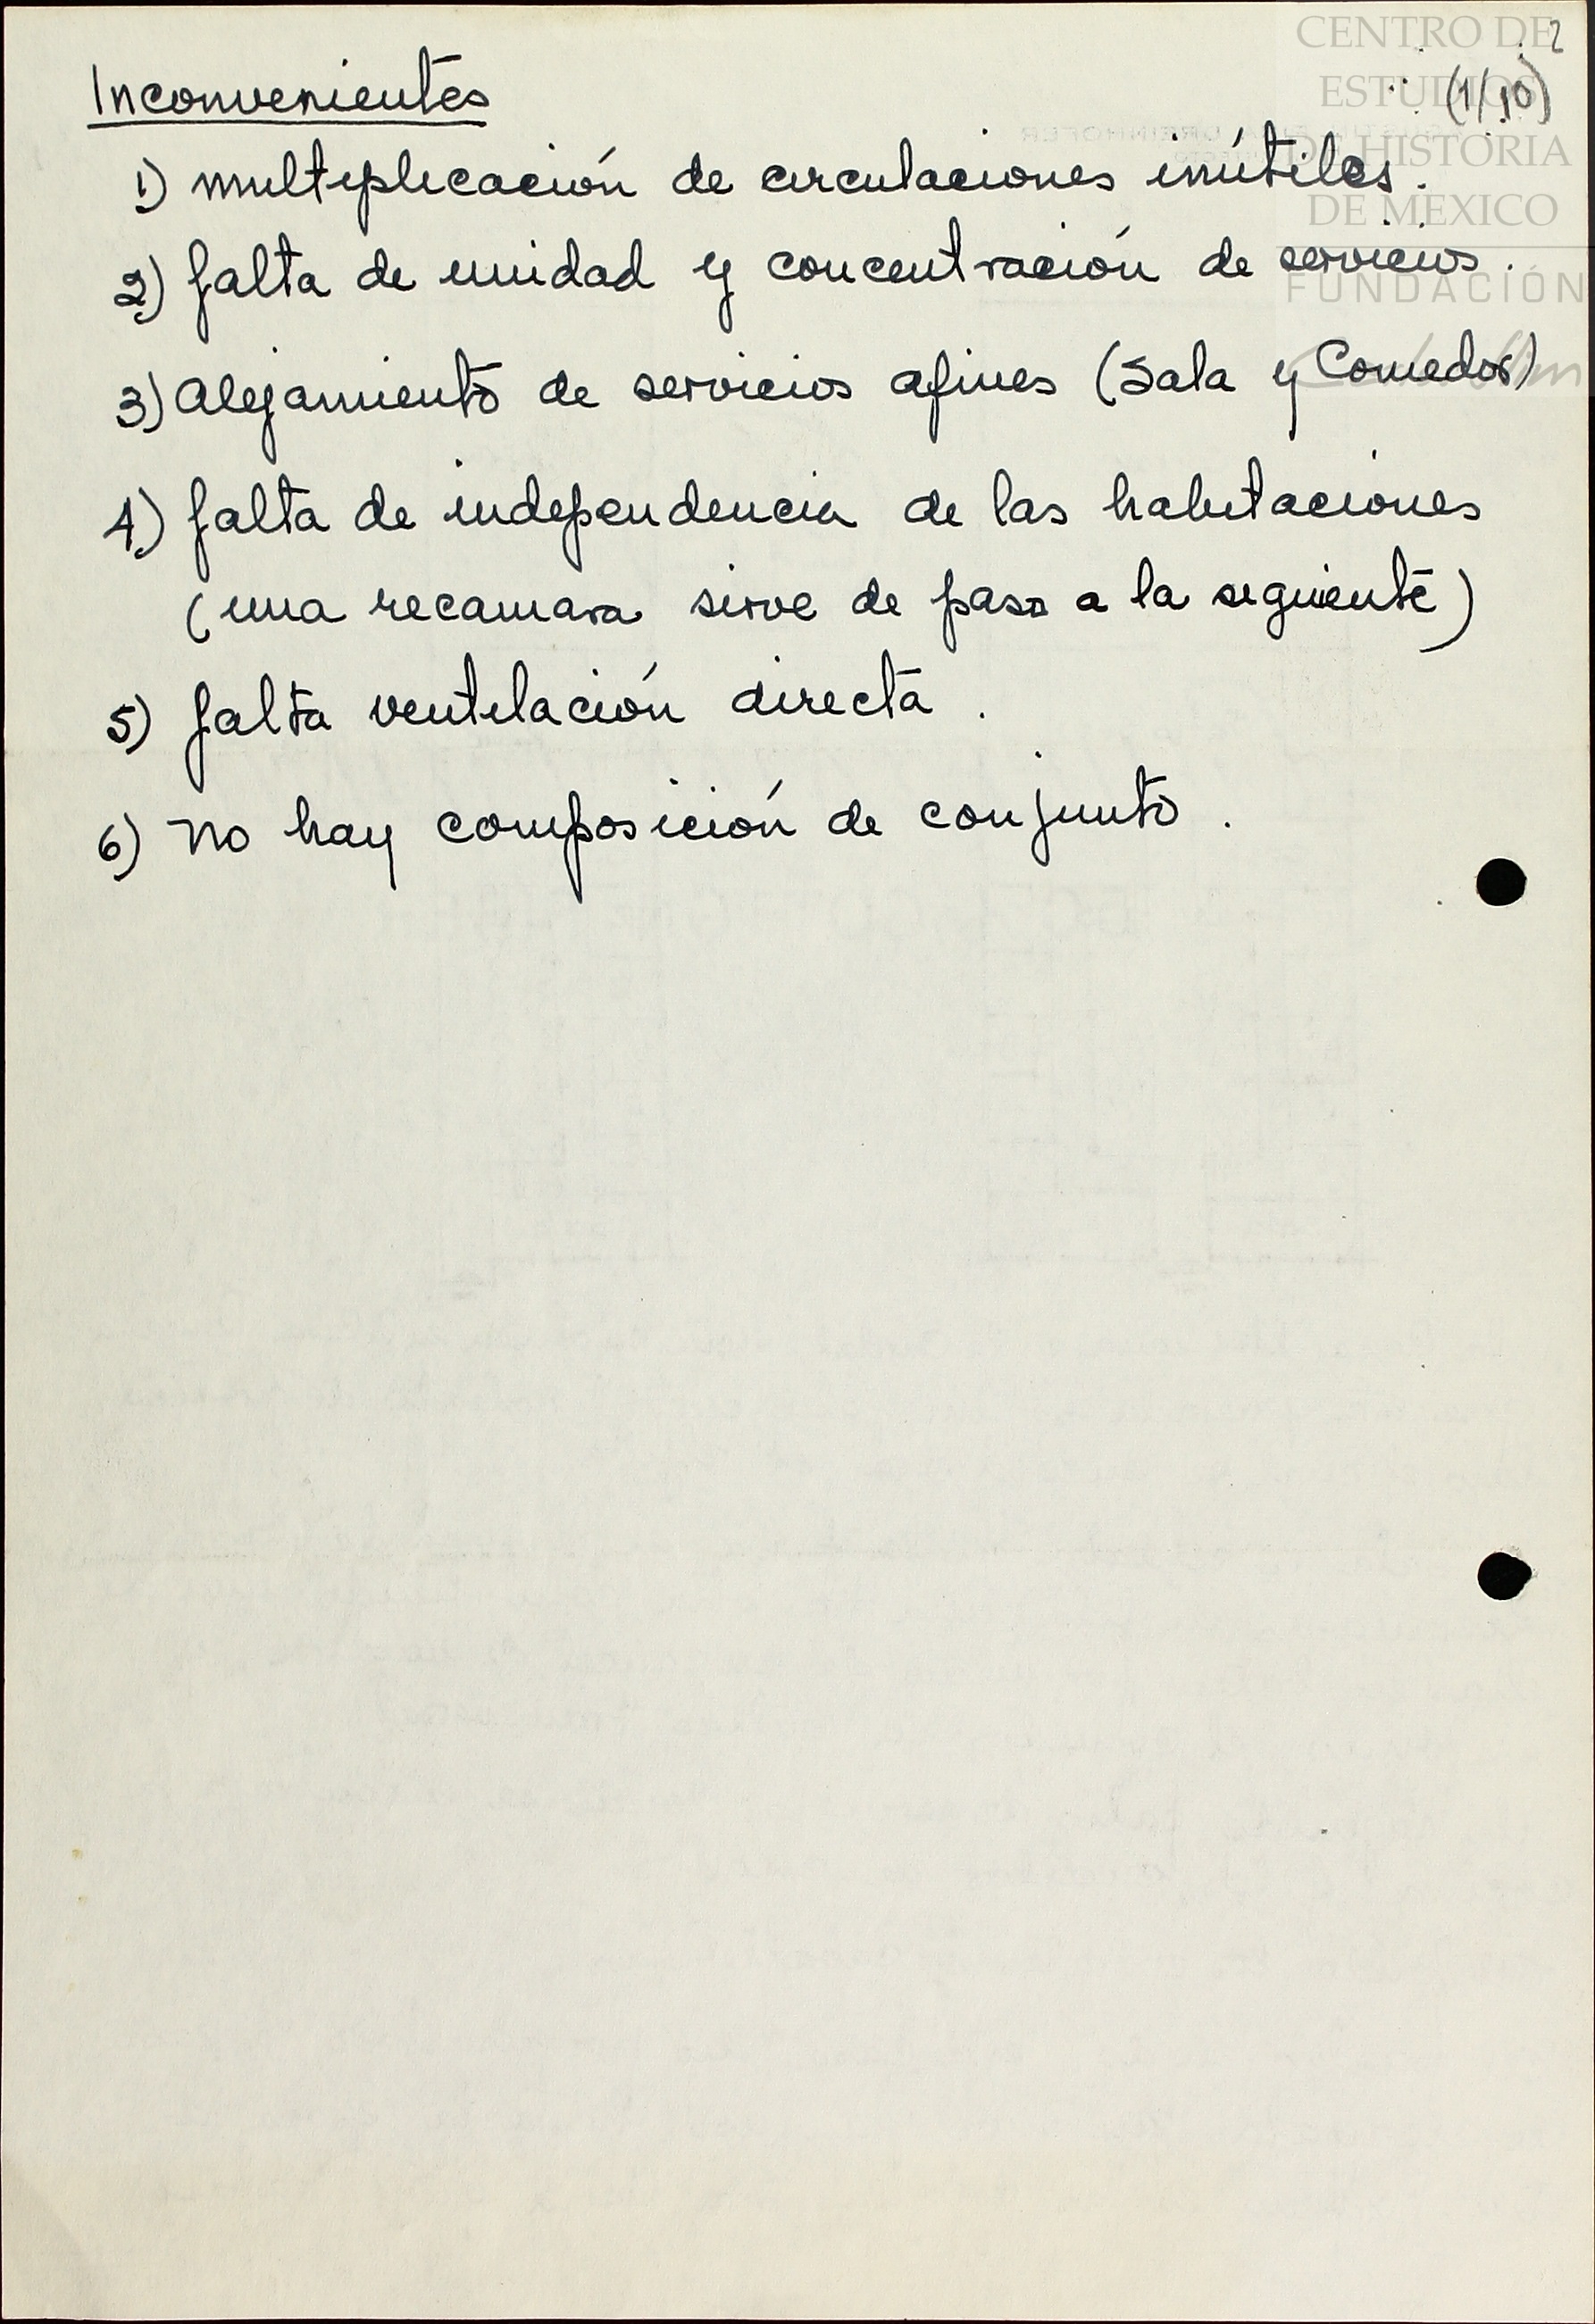 CENTRO DE
ESTUDIOS
DE HISTORIA
DE MÉXICO
FUNDACIÓN
2
(1/10)
Inconvenientes
1) multiplicación de circulaciones inútiles.
2) falta de unidad y concentración de servicios.
3) Alejamiento de servicios afines (Sala y Comedor)
4) falta de independencia de las habitaciones
(una recamara sirve de paso a la siguiente)
5) falta ventilación directa.
6) No hay composición de conjunto.